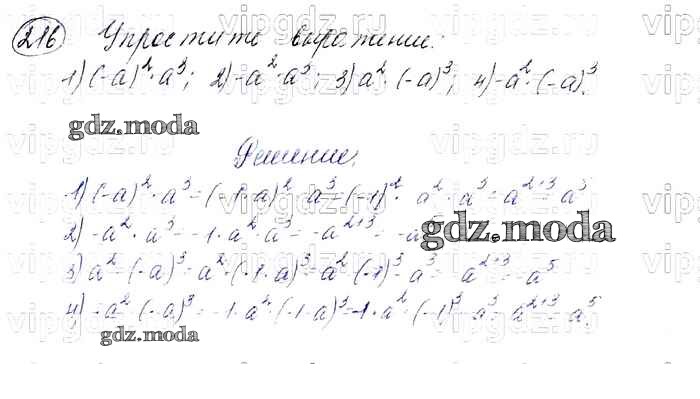 216 Упростите выражение:
1) (-a)² · a³; 2) -a² · a³; 3) a² · (-a)³; 4) -a² · (-a)³.
gdz.moda
Решение.
1) (-a)² · a³ = (-1·a)² · a³ = (-1)² · a² · a³ = a²⁺³ = a⁵
2) -a² · a³ = -1 · a² · a³ = -a²⁺³ = -a
gdz.moda
3) a² · (-a)³ = a² · (-1·a)³ = a² · (-1)³ · a³ = -a²⁺³ = -a⁵
4) -a² · (-a)³ = -1 · a² · (-1·a)³ = -1 · a² · (-1)³ · a³ = a²⁺³ = a⁵.
gdz.moda
vipgdz.ru